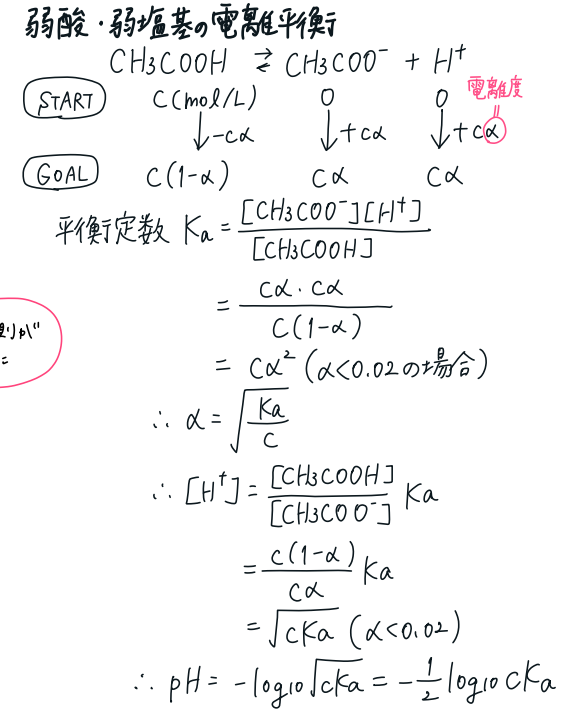 弱酸・弱塩基の電離平衡
CH3COOH ⇄ CH3COO⁻ + H⁺
電離度
START C(mol/L) 0 0 =
↓-cα ↓+cα ↓+cα
GOAL C(1-α) cα cα
平衡定数 Ka = [CH3COO⁻][H⁺] / [CH3COOH]
= cα・cα / C(1-α)
= cα² (α<0.02の場合)
∴ α = √(Ka / c)
∴ [H⁺] = [CH3COOH] / [CH3COO⁻] Ka
= c(1-α) / cα Ka
= √cKa (α<0.02)
∴ pH = -log10√cKa = -1/2 log10 cKa